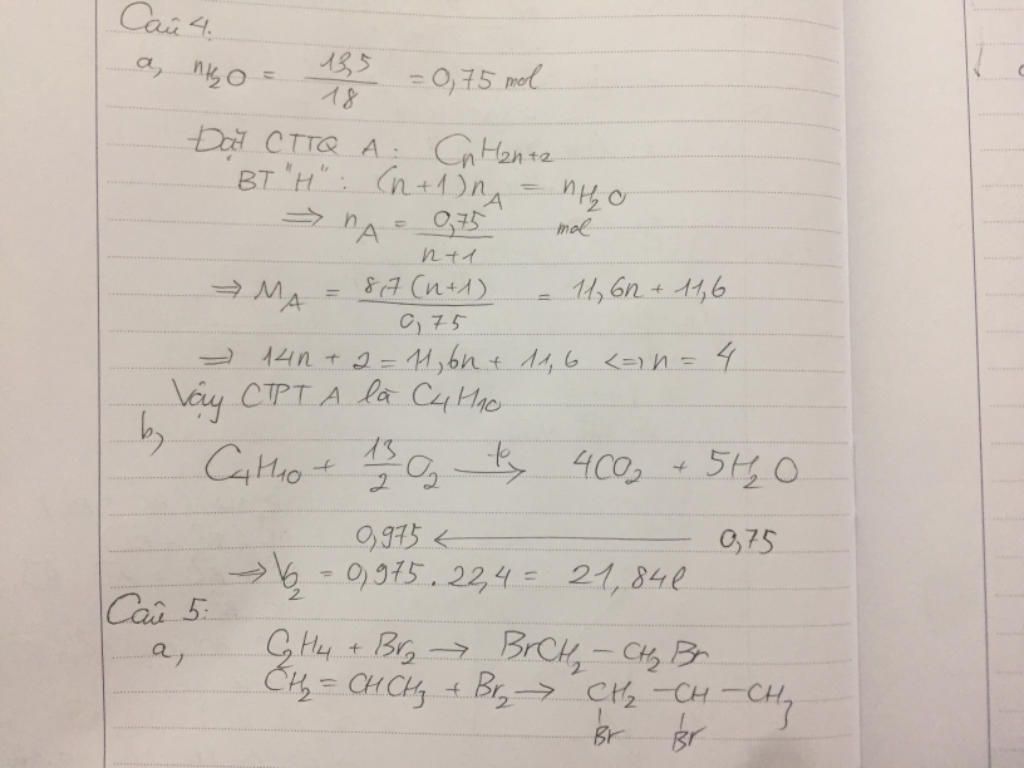 Câu 4:
a, nH2O = 13,5 / 18 = 0,75 mol
Đặt CTTQ A: CnH2n+2
BT "H": (n+1)nA = nH2O
⇒ nA = 0,75 / n+1 mol
⇒ MA = 8,7(n+1) / 0,75 = 11,6n + 11,6
⇒ 14n + 2 = 11,6n + 11,6 <=> n = 4
Vậy CTPT A là C4H10
b,
C4H10 + 13/2 O2 →(to) 4CO2 + 5H2O
0,975 ← 0,75
⇒ VO2 = 0,975 . 22,4 = 21,84l
Câu 5:
a, C2H4 + Br2 → BrCH2 – CH2Br
CH2 = CHCH3 + Br2 → CH2 – CH – CH3
Br Br